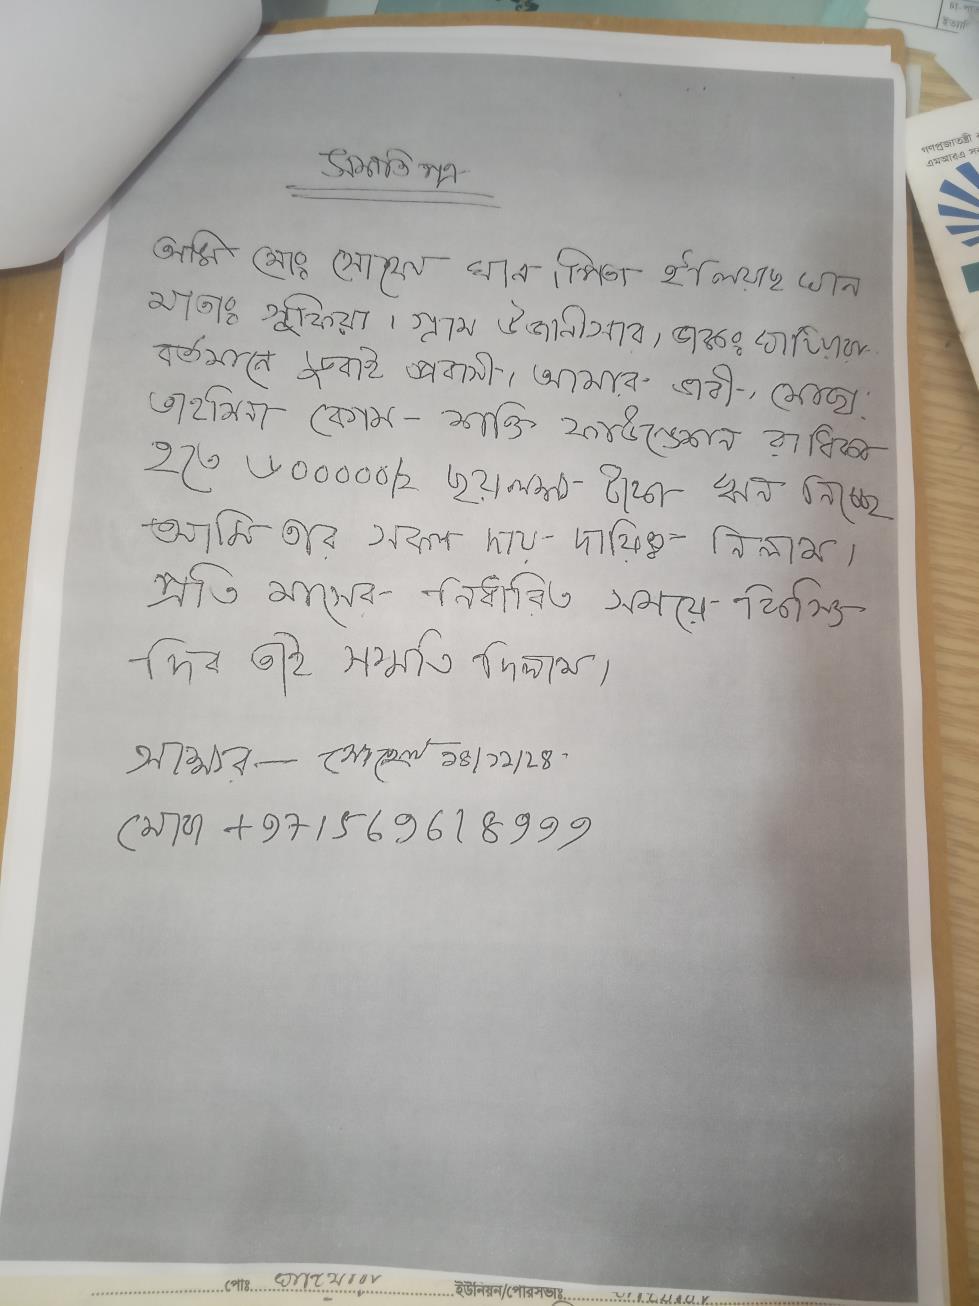 সম্মতি পত্র
আমি মোঃ সোহেল খান, পিতা ইলিয়াছ খান
মাতাঃ সুফিয়া। গ্রাম উজানীসার, ডাকঃ
বর্তমানে দুবাই প্রবাসী, আমার ভাবী, মোছাঃ
তাহমিনা বেগম - শক্তি ফাউন্ডেশন রাধিকা
হতে ৬০০০০০/= ছয়লক্ষ টাকা ঋন নিচ্ছে
আমি তার সকল দায়-দায়িত্ব নিলাম।
প্রতি মাসের নির্ধারিত সময়ে কিস্তি
দিব তাই সম্মতি দিলাম।
সাক্ষর — সোহেল ১৪/১২/২৪
মোবা +971569618999
পোঃ
ইউনিয়ন/পৌরসভাঃ
গণপ্রজাতন্ত্রী
এমআরএ